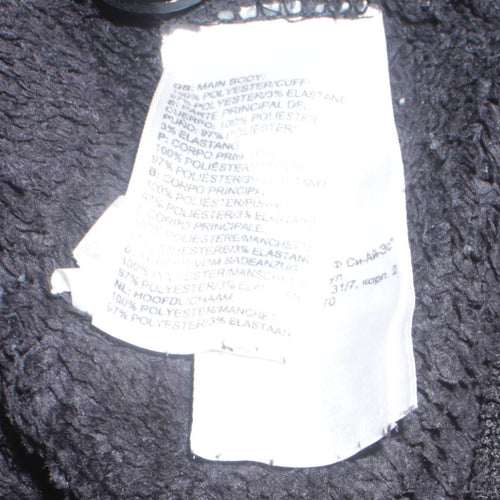 GB: MAIN BODY:
100% POLYESTER/CUFF:
97% POLYESTER/3% ELASTANE
E: PARTE PRINCIPAL DEL
CUERPO: 100% POLIÉSTER/
PUÑO: 97% POLIÉSTER/
3% ELASTANO
P: CORPO
100% POLIÉSTER/
97% POLIÉSTER/3% ELASTANO
B: CORPO PRINCIPAL
100% POLIÉSTER/
97% POLIÉSTER/3% ELASTANO
CORPO PRINCIPALE
100% POLIESTERE/MANCHETTE
97% POLIESTERE/3% ELASTAN
VOM BADEANZUG
100% POLYESTER/MANSCHETTE
97% POLYESTER/3% ELASTAN
NL: HOOFDLICHAAM
100% POLYESTER/MANCHET
97% POLYESTER/3% ELASTAAN
Ф Си-Ай-Эс"
ул.
31/7, корп. 2
70